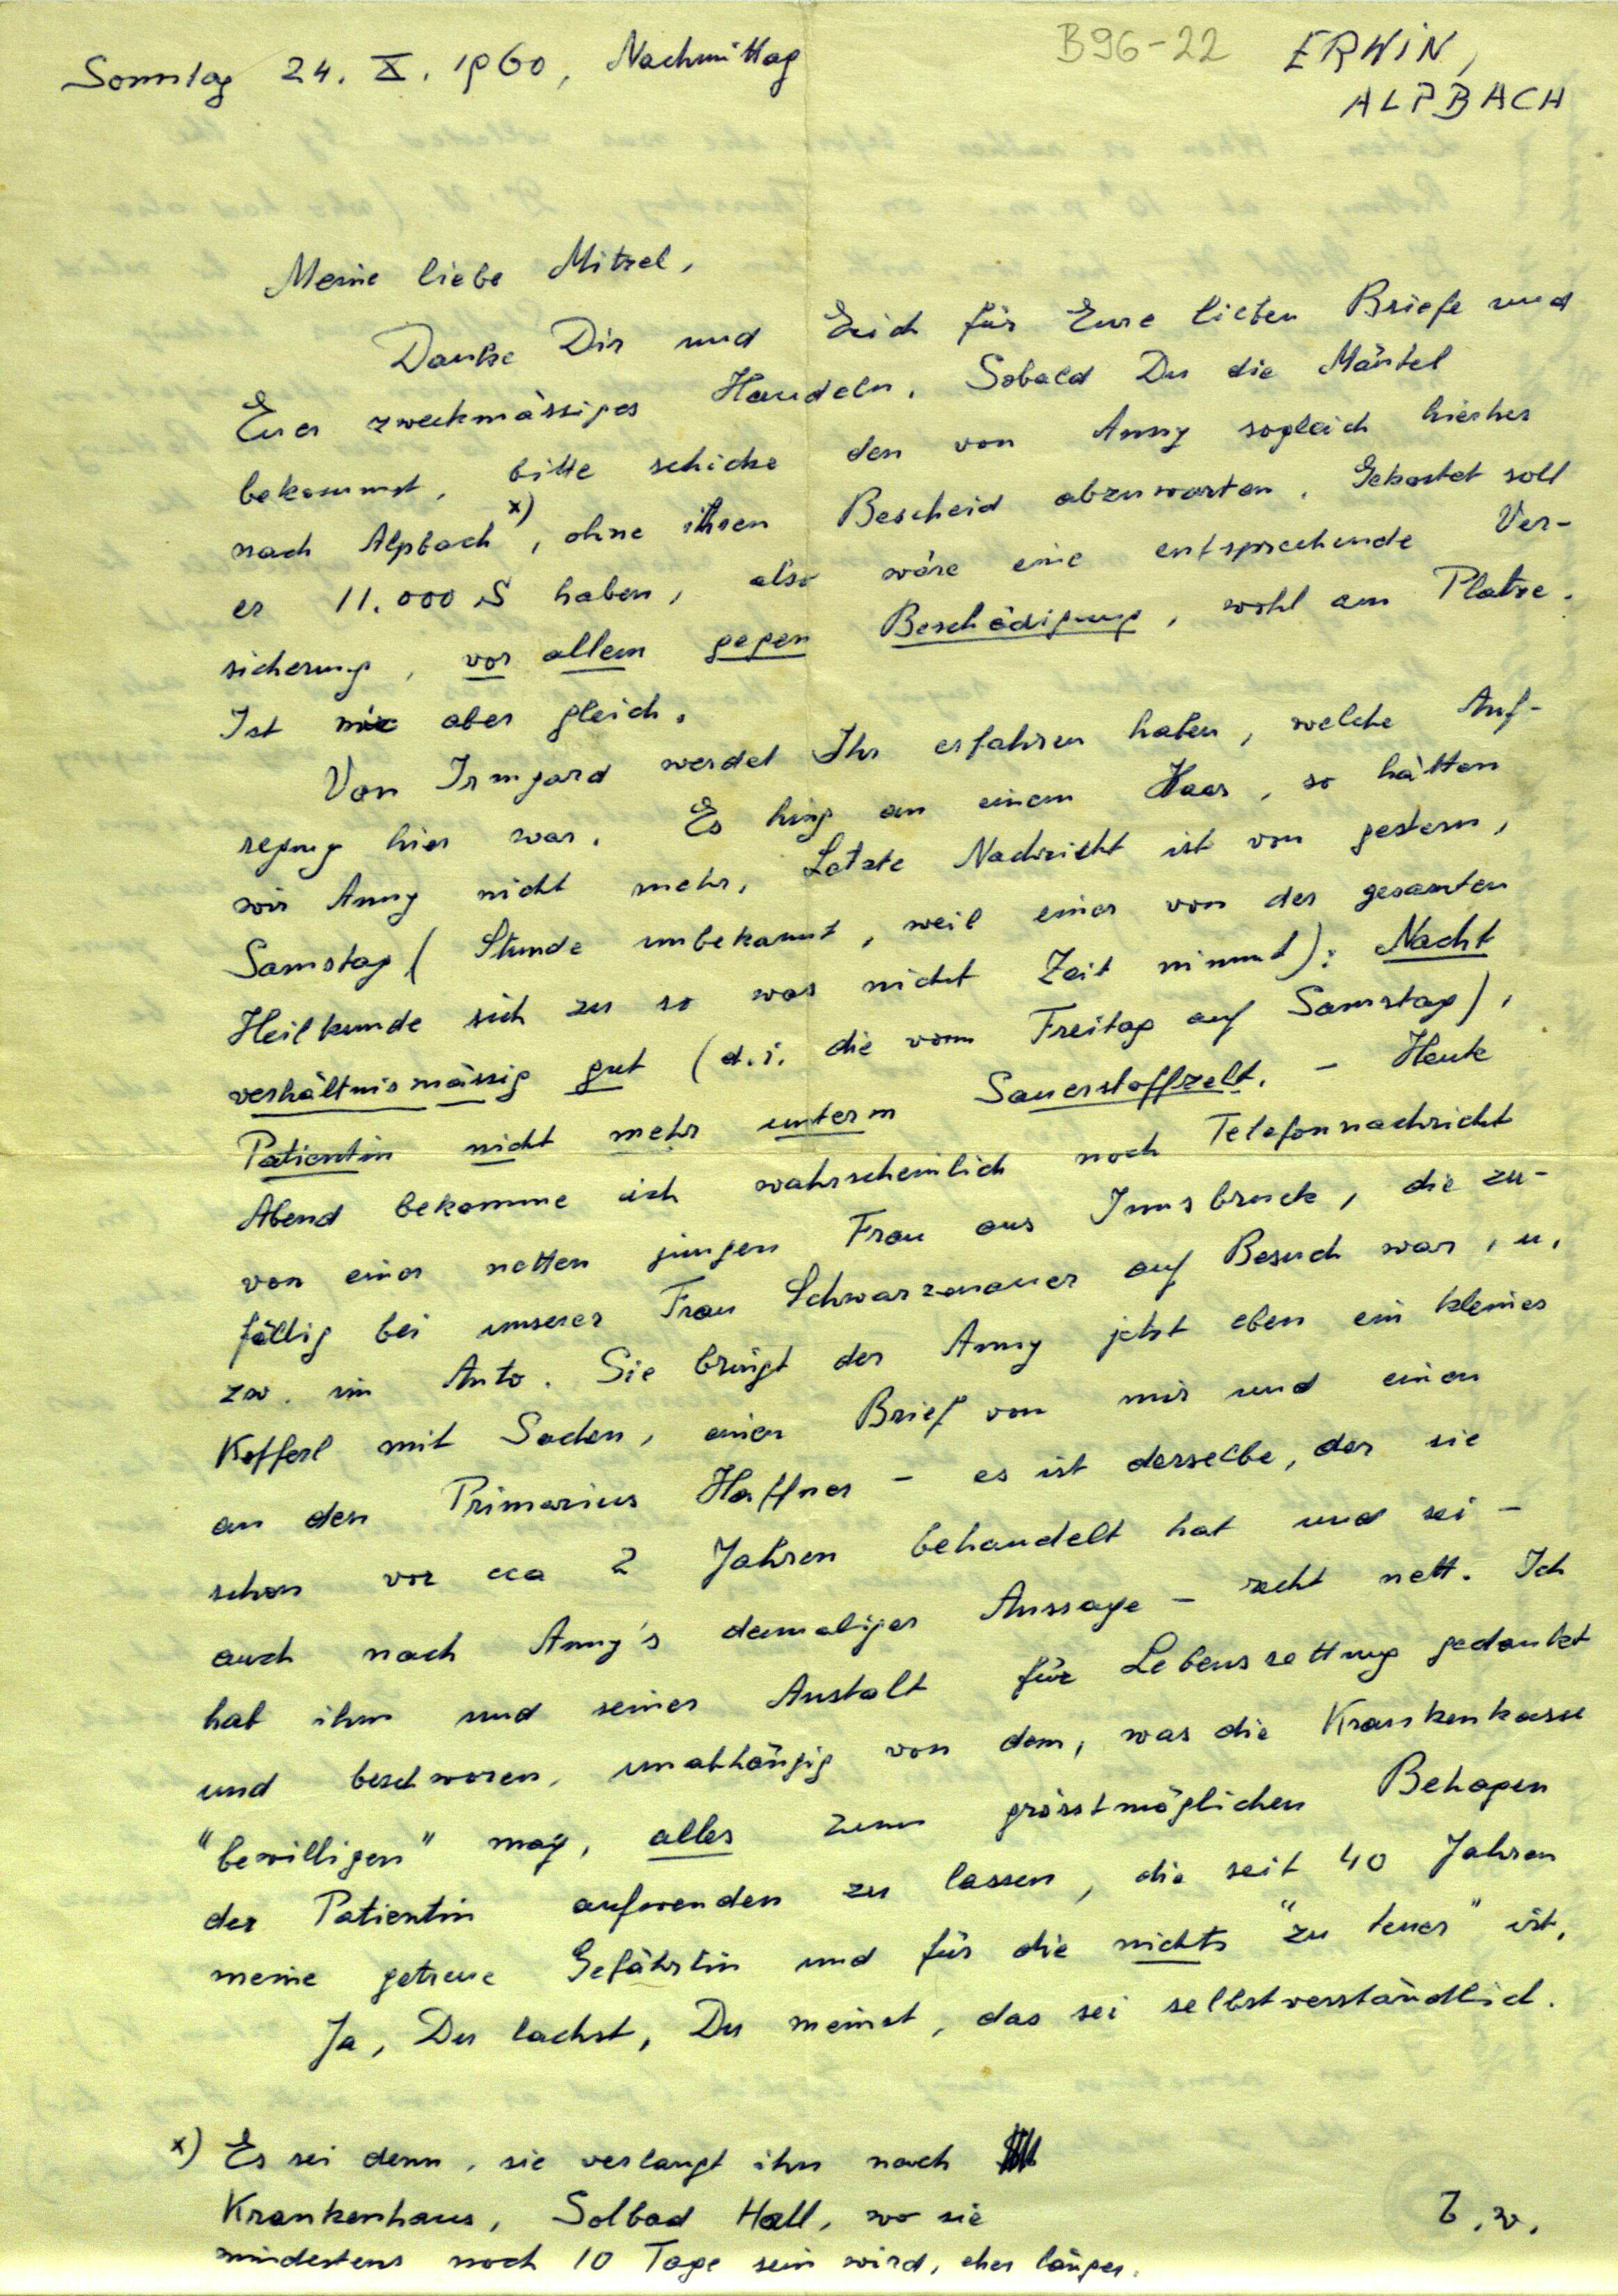 B96-22
ERWIN,
ALPBACH
Sonntag 24. X. 1960, Nachmittag
Meine liebe Mitzel,
Danke Dir und Euch für Eure lieben Briefe und
Euer zweckmässiges Handeln. Sobald Du die Mäntel
bekommst, bitte schicke den von Anny sogleich hierher
nach Alpbach x), ohne ihren Bescheid abzuwarten. Gekostet soll
er 11.000 S haben, also wäre eine entsprechende Ver-
sicherung, vor allem gegen Beschädigung, wohl am Platze.
Ist mir aber gleich.
Von Irmgard werdet Ihr erfahren haben, welche Auf-
regung hier war. Es hing an einem Haar, so hätten
wir Anny nicht mehr. Letzte Nachricht ist von gestern,
Samstag (Stunde unbekannt, weil einer von der gesamten
Heilkunde sich zu so was nicht Zeit nimmt): Nacht
verhältnismässig gut (d.i. die vom Freitag auf Samstag),
Patientin nicht mehr unterm Sauerstoffzelt. – Heute
Abend bekomme ich wahrscheinlich noch Telefonnachricht
von einer netten jungen Frau aus Innsbruck, die zu-
fällig bei unserer Frau Schwarzenauer auf Besuch war, u.
zw. im Auto. Sie bringt der Anny jetzt eben ein kleines
Kofferl mit Sachen, einen Brief von mir und einen
an den Primarius Haffner – es ist derselbe, der sie
schon vor cca 2 Jahren behandelt hat und sei –
auch nach Anny's damaliger Aussage – recht nett. Ich
hab ihm und seiner Anstalt für Lebensrettung gedankt
und beschworen, unabhängig von dem, was die Krankenkasse
"bewilligen" mag, alles zum grösstmöglichen Behagen
der Patientin aufwenden zu lassen, die seit 40 Jahren
meine getreue Gefährtin und für die nichts "zu teuer" ist.
Ja, Du lachst, Du meinst, das sei selbstverständlich.
x) Es sei denn, sie verlangt ihn nach
Krankenhaus, Solbad Hall, wo sie
mindestens noch 10 Tage sein wird, eher länger.
b.w.